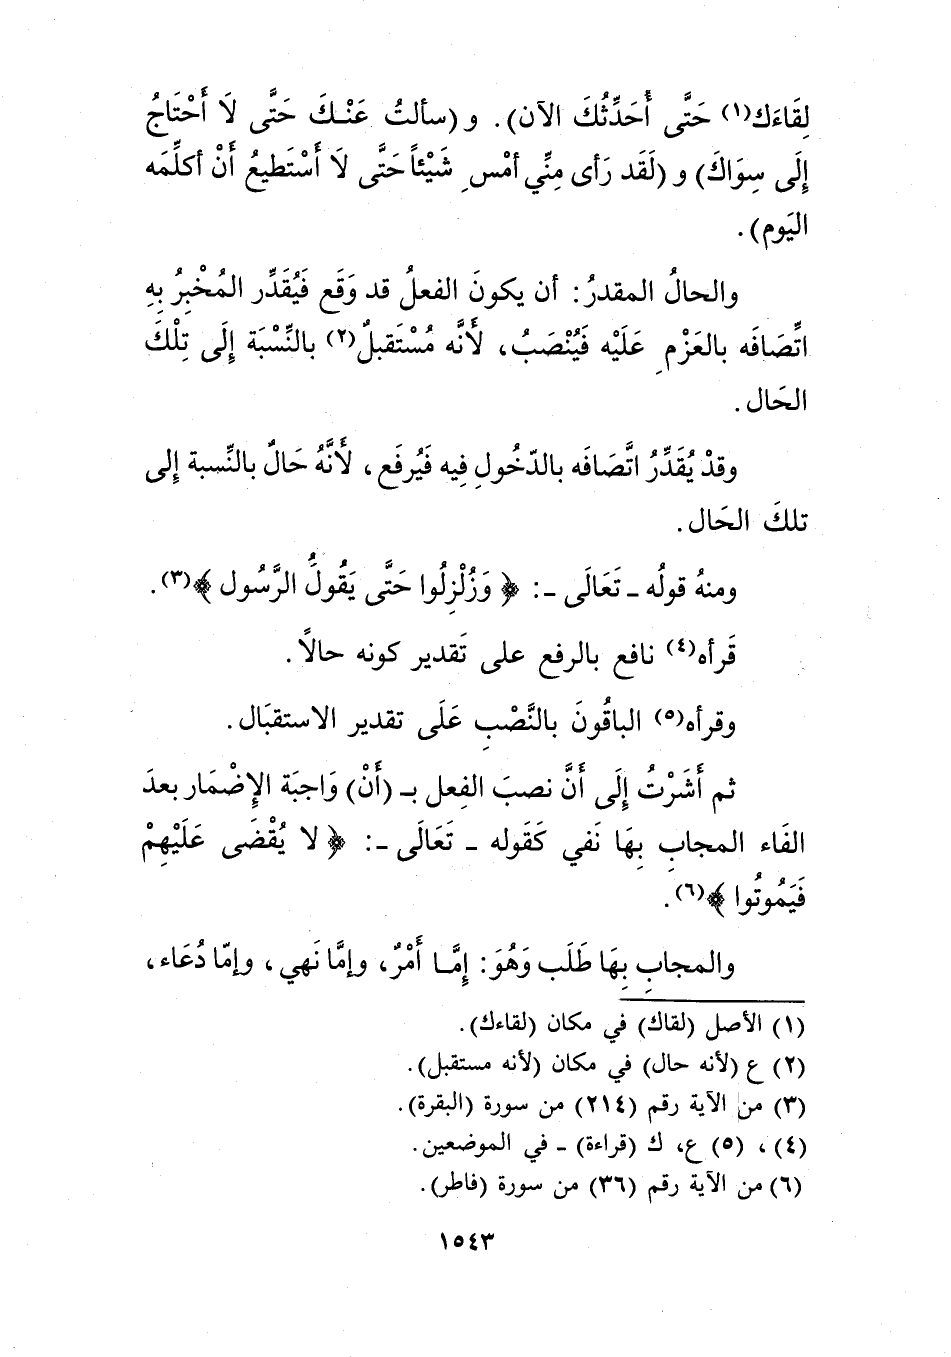 لِقَاءَك(١) حَتَّى أُحَدِّثُكَ الآن). و (سألتُ عَنْـكَ حَتَّى لَا أَحْتَاجُ
إِلَى سِوَاكَ) و (لَقَد رَأى مِنِّي أمْسِ شَيْئاً حَتَّى لَا أَسْتَطيعُ أَنْ أكلِّمَه
اليَوم).
والحالُ المقدرُ: أن يكونَ الفعلُ قد وَقَع فَيُقَدِّر المُخْبِرُ بِهِ
اتِّصَافَه بالعَزْمِ عَلَيْه فَيُنْصَبُ، لَأنَّه مُسْتَقبلٌ(٢) بالنِّسْبَة إِلَى تِلْكَ
الحَال.
وقدْ يُقَدِّرُ اتَّصَافَه بالدّخُولِ فِيه فَيُرفَع، لَأَنَّهُ حَالٌ بالنِّسبة إِلى
تلكَ الحَال.
ومنهُ قولُه ـ تَعَالَى ـ: ﴿ وَزُلْزِلُوا حَتَّى يَقُولَُ الرَّسُول ﴾(٣).
قَرأه(٤) نافع بالرفع على تَقدير كونه حالاً.
وقرأه(٥) الباقُونَ بالنَّصْبِ عَلَى تقدير الاستقبَال.
ثم أَشَرْتُ إِلَى أَنَّ نصبَ الفِعل بـ (أَنْ) وَاجبَة الإِضْمَار بعدَ
الفَاء المجابِ بِهَا نَفي كَقَوله ـ تَعَالَى ـ: ﴿ لا يُقْضَى عَلَيْهِمْ
فَيَمُوتُوا ﴾(٦).
والمجابِ بِهَا طَلَب وَهُوَ: إِمَّـا أَمْرٌ، وإمَّا نَهي، وإمّا دُعَاء،
(١) الأصل (لقاك) في مكان (لقاءك).
(٢) ع (لأنه حال) في مكان (لأنه مستقبل).
(٣) من الآية رقم (٢١٤) من سورة (البقرة).
(٤)، (٥) ع، ك (قراءة) ـ في الموضعين.
(٦) من الآية رقم (٣٦) من سورة (فاطر).
١٥٤٣